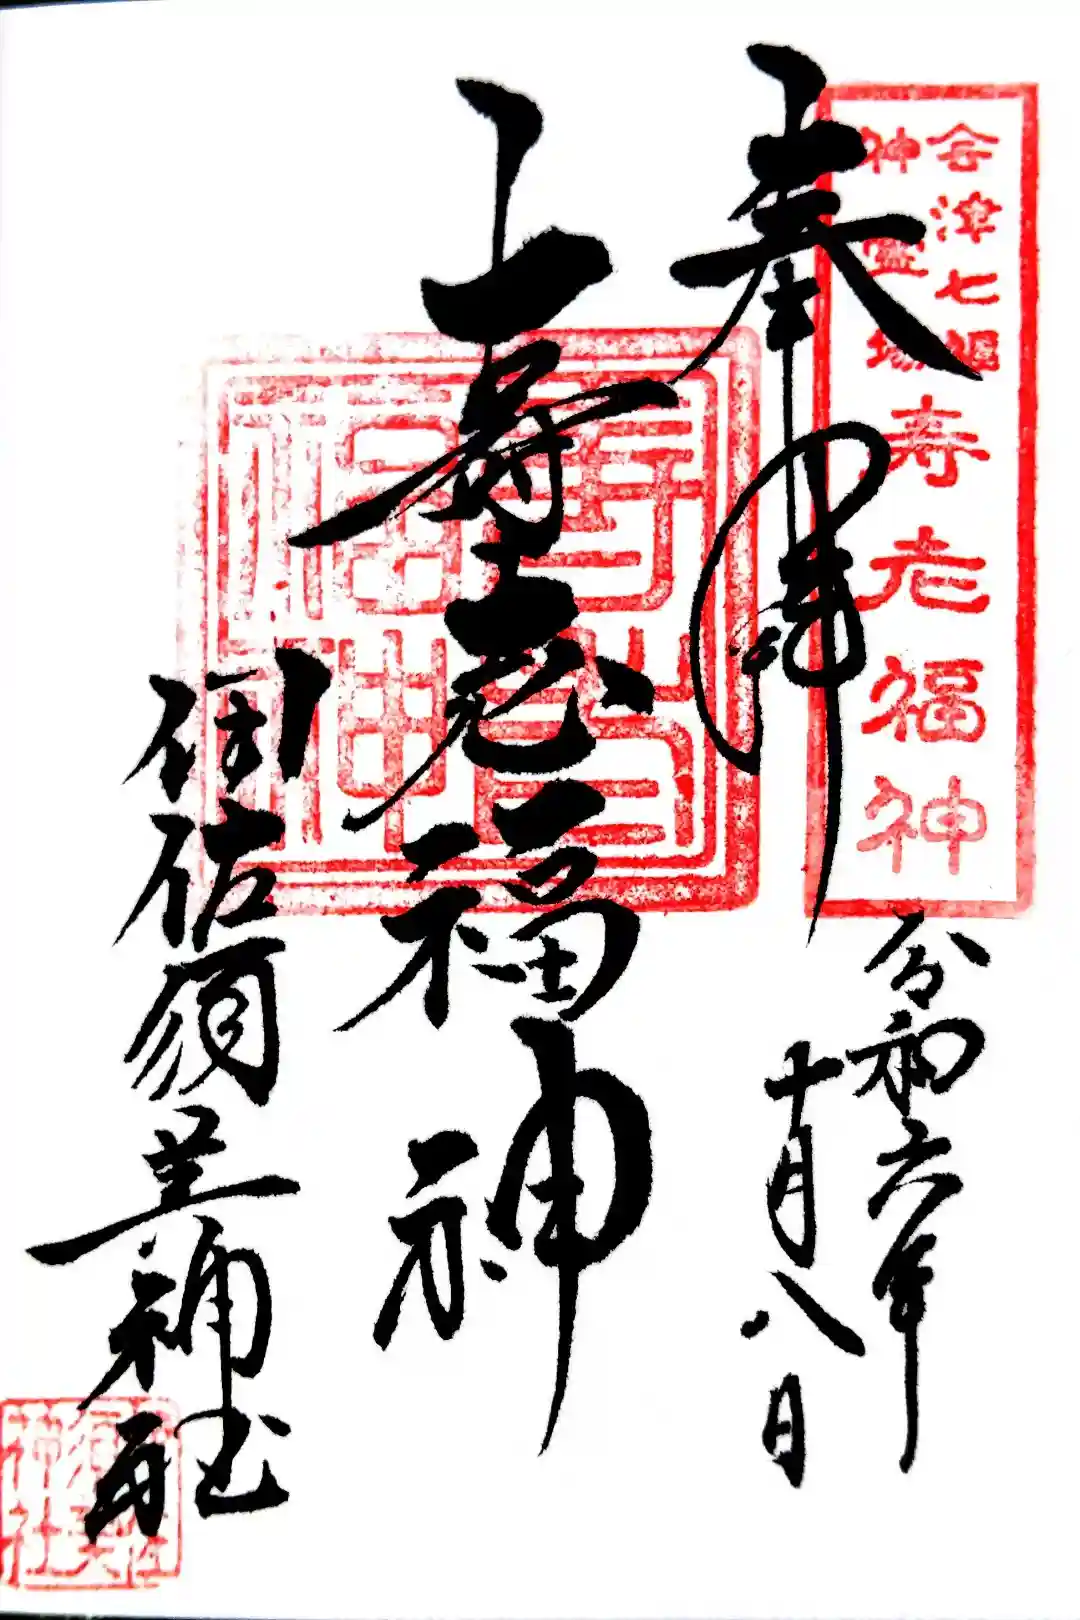 奉拝
会津七福
神霊場
寿老福神
令和六年
十月八日
上寿老福神
寿老
福神
伊佐須美神社